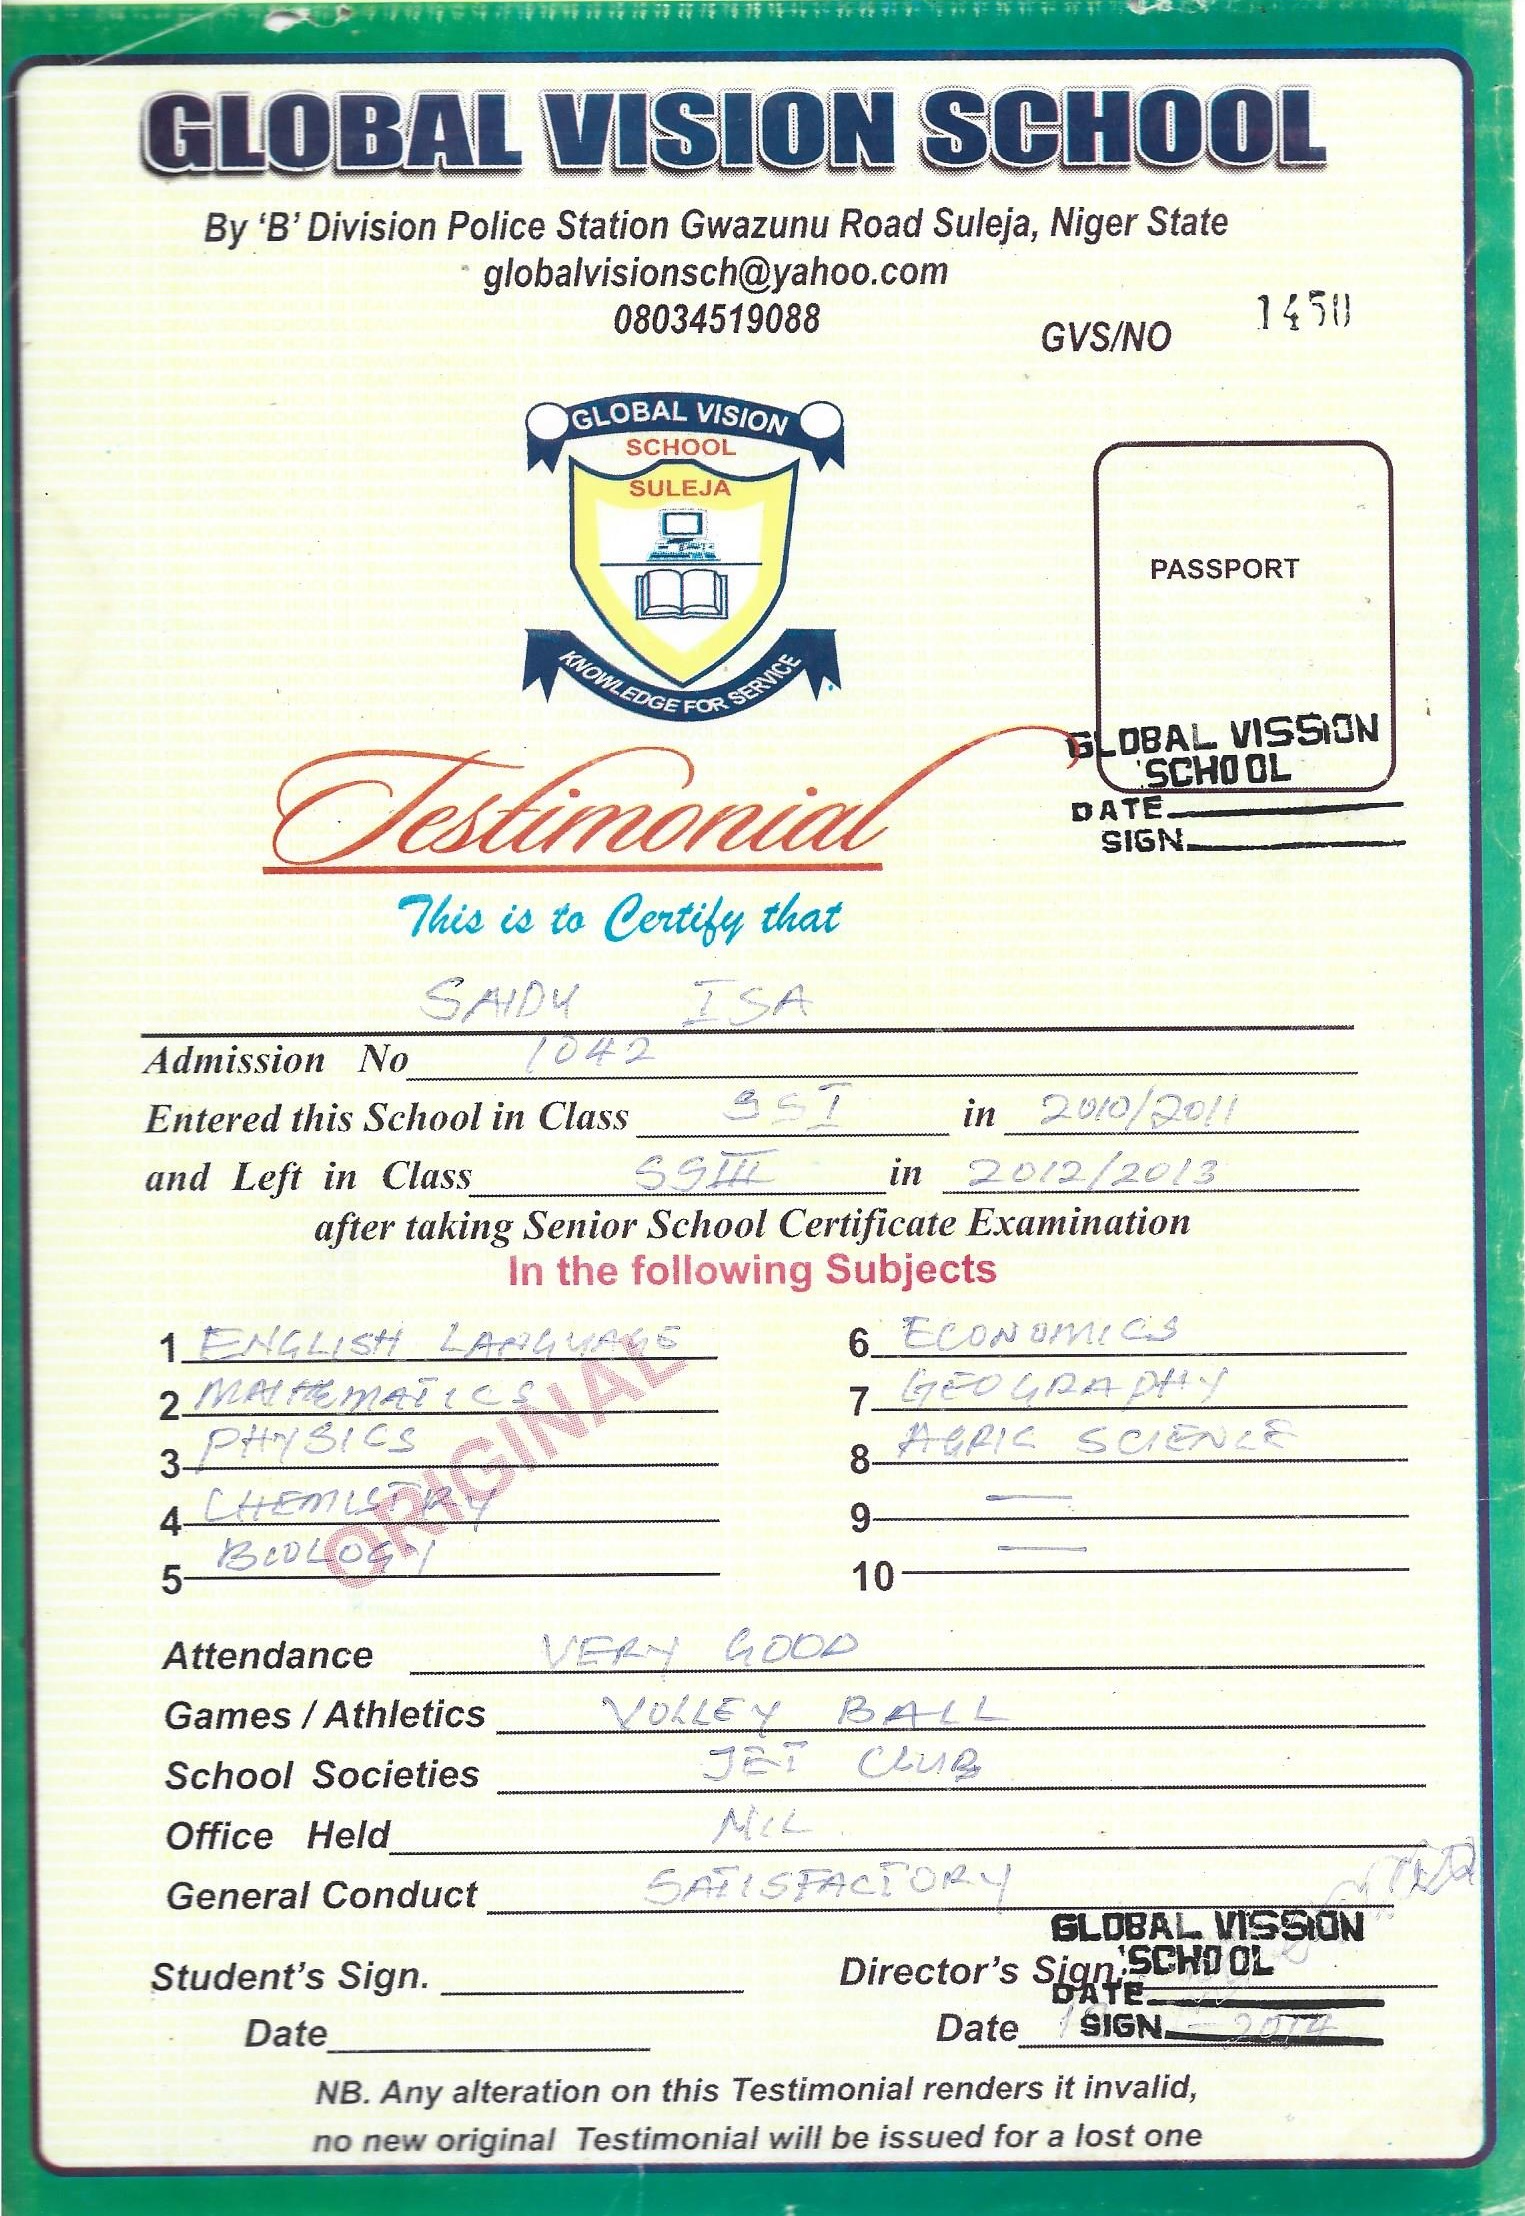 GLOBAL VISION SCHOOL
By 'B' Division Police Station Gwazunu Road Suleja, Niger State
globalvisionsch@yahoo.com
08034519088
GVS/NO 1450
GLOBAL VISION
SCHOOL
SULEJA
KNOWLEDGE FOR SERVICE
PASSPORT
GLOBAL VISSION
SCHOOL
DATE
SIGN
Testimonial
This is to Certify that
SAIDU ISA
Admission No 1042
Entered this School in Class SSI in 2010/2011
and Left in Class SSIII in 2012/2013
after taking Senior School Certificate Examination
In the following Subjects
1 ENGLISH LANGUAGE
2 MATHEMATICS
3 PHYSICS
4 CHEMISTRY
5 BIOLOGY
ORIGINAL
6 ECONOMICS
7 GEOGRAPHY
8 AGRIC SCIENCE
9 —
10 —
Attendance VERY GOOD
Games / Athletics VOLLEY BALL
School Societies JET CLUB
Office Held NIL
General Conduct SATISFACTORY
GLOBAL VISSION
SCHOOL
DATE
SIGN
Student's Sign.
Director's Sign.
Date
Date 2014
NB. Any alteration on this Testimonial renders it invalid,
no new original Testimonial will be issued for a lost one